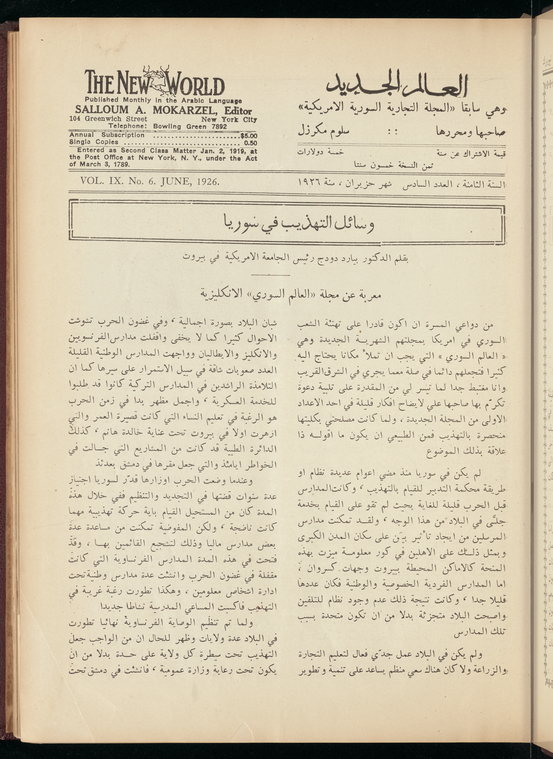 THE NEW WORLD
Published Monthly in the Arabic Language
SALLOUM A. MOKARZEL, Editor
104 Greenwich Street New York City
Telephone: Bowling Green 7892
Annual Subscription $5.00
Single Copies 0.50
Entered as Second Class Matter Jan. 2, 1919, at
the Post Office at New York, N. Y., under the Act
of March 3, 1789.
العالم الجديد
وهي سابقا «المجلة التجارية السورية الامريكية»
صاحبها ومحررها : : سلوم مكرزل
قيمة الاشتراك عن سنة خمسة دولارات
ثمن النسخة خمسون سنتا
VOL. IX. No. 6. JUNE, 1926.
السنة الثامنة ، العدد السادس شهر حزيران ، سنة ١٩٢٦
وسائل التهذيب في سوريا
بقلم الدكتور بيارد دودج رئيس الجامعة الامريكية في بيروت
معربة عن مجلة «العالم السوري» الانكليزية
من دواعي المسرة ان اكون قادرا على تهنئة الشعب
السوري في امريكا بمجلتهم الشهرية الجديدة وهي
« العالم السوري » التي يجب ان تملأ مكانا يحتاج اليه
كثيرا فتجعلهم دائما في صلة معما يجري في الشرق القريب
وانا مغتبط جدا لما تيسر لي من المقدرة على تلبية دعوة
تكرّم بها صاحبها علي لايضاح افكار قليلة في احد الاعداد
الاولى من المجلة الجديدة ، ولما كانت مصلحتي بكليتها
منحصرة بالتهذيب فمن الطبيعي ان يكون ما اقوله ذا
علاقة بذلك الموضوع
لم يكن في سوريا منذ مضي اعوام عديدة نظام او
طريقة محكمة التدبير للقيام بالتهذيب ، وكانت المدارس
قبل الحرب قليلة للغاية بحيث لم تقو على القيام بخدمة
جلّى في البلاد من هذا الوجه ، ولقد تمكنت مدارس
المرسلين من ايجاد تأثير بيّن على سكان المدن الكبرى
وبمثل ذلك على الاهلين في كور معلومة ميزت بهذه
المنحة كالاماكن المحيطة ببيروت وجهات كسروان ،
اما المدارس الفردية الخصوصية والوطنية فكان عددها
قليلا جدا ، وكانت نتيجة ذلك عدم وجود نظام للتلقين
واصبحت البلاد متجزئة بدلا من ان تكون متحدة بسبب
تلك المدارس
ولم يكن في البلاد عمل جدّي فعال لتعليم التجارة
والزراعة ولا كان هناك سعي منظم يساعد على تنمية وتطوير
شان البلاد بصورة اجمالية ، وفي غضون الحرب تشوشت
الاحوال كثيرا كما لا يخفى واقفلت مدارس الفرنسويين
والانكليز والايطاليان وواجهت المدارس الوطنية القليلة
العدد صعوبات شاقة في سبيل الاستمرار على سيرها كما ان
التلامذة الراشدين في المدارس التركية كانوا قد طلبوا
للخدمة العسكرية ، واجمل مظهر بدا في زمن الحرب
هو الرغبة في تعليم النساء التي كانت قصيرة العمر والتي
ازهرت اولا في بيروت تحت عناية خالدة هانم ، كذلك
الدائرة الطبية قد كانت من المشاريع التي جالت في
الخواطر ايامئذ والتي جعل مقرها في دمشق بعدئذ
وعندما وضعت الحرب اوزارها قدّر لسوريا اجتياز
عدة سنوات قضتها في التجديد والتنظيم ففي خلال هذه
المدة كان من المستحيل القيام باية حركة تهذيبية مهما
كانت ناضجة ، ولكن المفوضية تمكنت من مساعدة عدة
بعض مدارس ماليا وذلك لتشجيع القائمين بها ، وقد
فتحت في هذه المدة المدارس الفرنساوية التي كانت
مقفلة في غضون الحرب وانشئت عدة مدارس وطنية تحت
ادارة اشخاص معلومين ، وهكذا تطورت رغبة غريبة في
التهذيب فاكسبت المساعي المدرسية نشاطا جديدا
ولما تم تنظيم الوصاية الفرنساوية نهائيا تطورت
في البلاد عدة ولايات وظهر للحال ان من الواجب جعل
التهذيب تحت سيطرة كل ولاية على حدة بدلا من ان
يكون تحت رعاية وزارة عمومية ، فانشئت في دمشق تحت